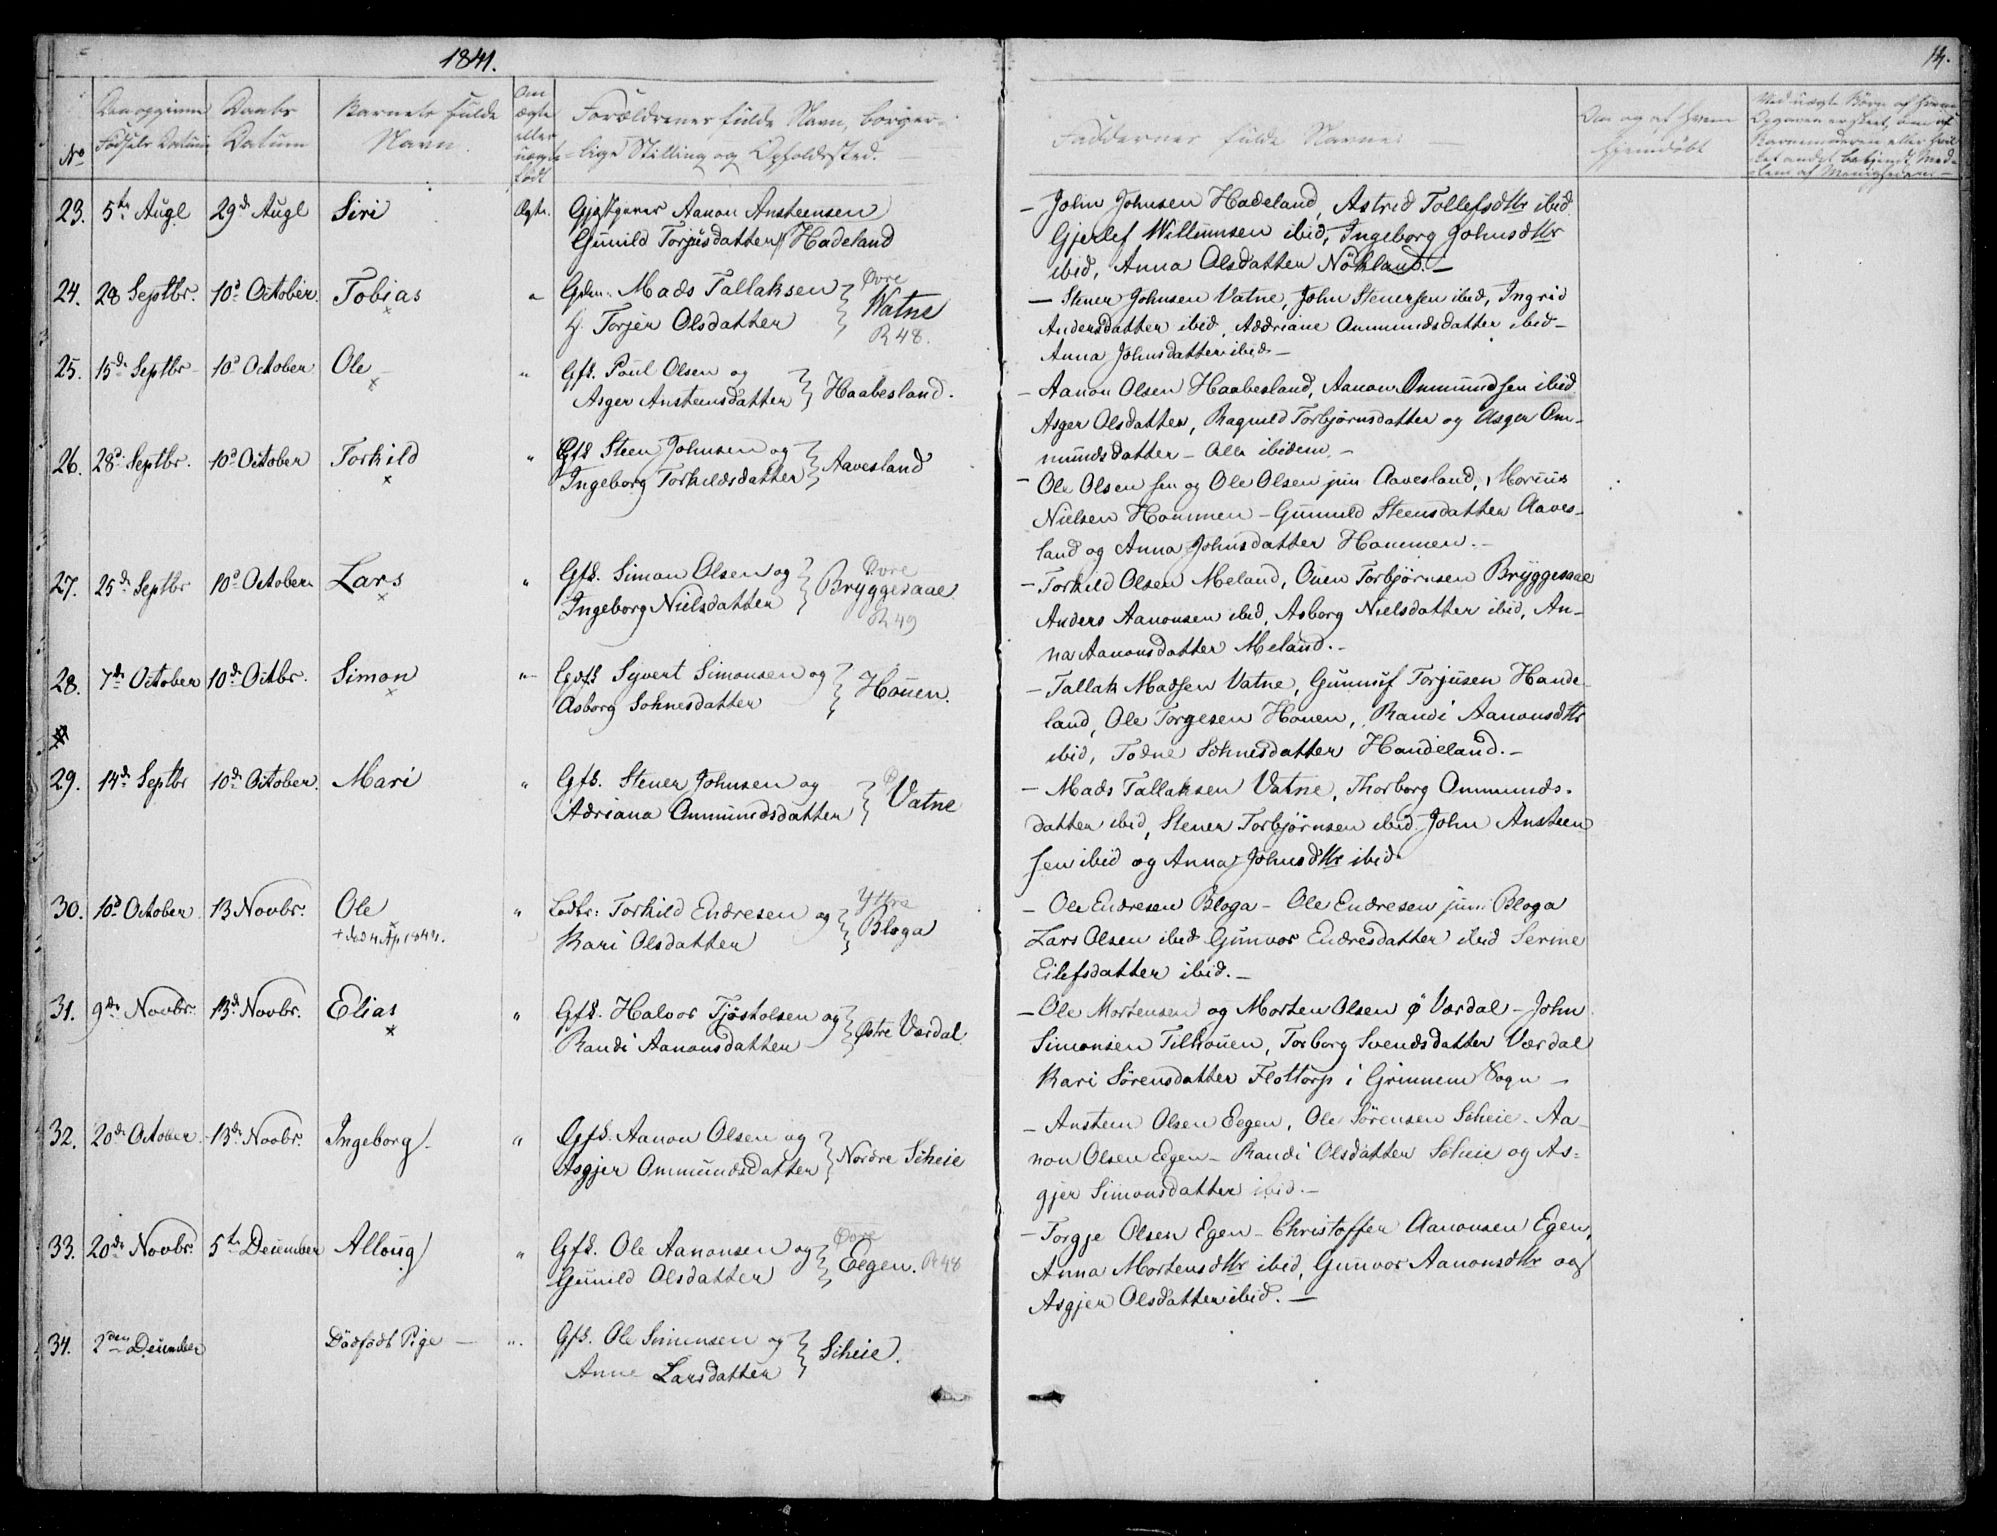 1841.
14.
No
Den opgivne Fødsels Datum
Daabs Datum
Barnets fulde Navn.
Om ægte eller uægte født
Forældrenes fulde Navn, borgerlige Stilling og Opholdssted.
Faddernes fulde Navne:
Om og af hvem hjemdøbt
23. 5te Augl 29de Augl Siri Ægte. Gjestgiver Aanon Ansteensen
Gunild Torjusdatter Hadeland
– John Johnsen Hadeland, Astrid Tollefsdttr ibid
Gjerlef Willumsen ibid, Ingeborg Johnsdttr
ibid, Anna Olsdatter Nökland. –
24. 28 Septbr. 10d October. Tobias " Gdm. Mads Tallaksen Øvre
H. Torjer Olsdatter Watne
R 48.
– Stener Johnsen Vatne, John Stenersen ibid, Ingrid
Andersdatter ibid, Addriane Ommundsdatter ibid –
Anna Johnsdatter ibid –
25. 15de Septbr 10d October Ole " Gfs. Poul Olsen og
Asger Ansteensdatter Haabesland.
– Aanon Olsen Haabesland, Aanon Ommundsen ibid
Asger Olsdatter, Ragnild Torbjørnsdatter og Asger Om-
mundsdatter – Alle ibidem. –
26. 28d Septbr. 10d October Torkild " Gfs Steen Johnsen og
Ingeborg Torkildsdatter Aavesland
– Ole Olsen sen og Ole Olsen jun Aavesland,
Nielsen Hommen – Gunnild Steensdatter Aaves-
land og Anna Johnsdatter Hommen. –
27. 25de Septbr 10d October Lars " Gfs. Simon Olsen og Øvre
Ingeborg Nielsdatter Bryggesaae.
R 49
– Torkild Olsen Meland, Ouen Torbjørnsen Bryggesaae
Anders Aanonsen ibid, Asborg Nielsdatter ibid, An-
na Aanonsdatter Meland. –
28. 7de October 10de Octbr. Simon " Gdfs Syvert Simonsen og
Asborg Sohnesdatter Houen.
– Tallak Madsen Vatne, Gunnuf Torjusen Hande-
land, Ole Torgesen Houen, Randi Aanonsdttr
ibid, Todne Sohnesdatter Handeland. –
29. 14de Septbr 10de October. Mari " Gfs. Stener Johnsen og
Adriana Ommundsdatter Ø Vatne
– Mads Tallaksen Vatne, Thorborg Ommunds-
datter ibid, Stener Torbjørnsen ibid. John Ansteen
sen ibid og Anna Johnsdttr ibid
30. 10d October 13 Novbr. Ole " Torkild Endresen og Yttre
+ ded 4 Ap 1844. Kari Olsdatter Bloga
– Ole Endresen Bloga – Ole Endresen jun: Bloga
Lars Olsen ibid Gunvor Endresdatter ibid Serine
Eilefsdatter ibid. –
31. 9de Novbr. 13de Novbr. Elias " Gfs. Halvor Tjøstolsen og
Randi Aanonsdatter Østre Værdal
– Ole Mortensen og Morten Olsen Ø Værdal – John
Simonsen Tilhouen, Torborg Svendsdatter Værdal
Kari Sörensdatter Flottorp i Grinnem Sogn –
32. 20de October 13de Novbr. Ingeborg " Gfs. Aanon Olsen og
Asgjer Ommundsdatter Nordre Scheie
– Anstein Olsen Eegen, Ole Sörensen Scheie. Aa-
non Olsen Eegen – Randi Olsdatter Scheie og As-
gjer Simonsdatter ibid. –
33. 20de Novbr. 5te December Alloug " Gfs. Ole Aanonsen og Øvre
Gunild Olsdatter Eegen. R 48
– Torgje Olsen Egen – Christoffer Aanonsen Egen,
Anna Mortensdttr ibid, Gunvor Aanonsdttr og
Asgjer Olsdatter ibid. –
34. 2den December Dödfödt Pige – " Gfs. Ole Simonsen og
Anne Larsdatter Scheie.